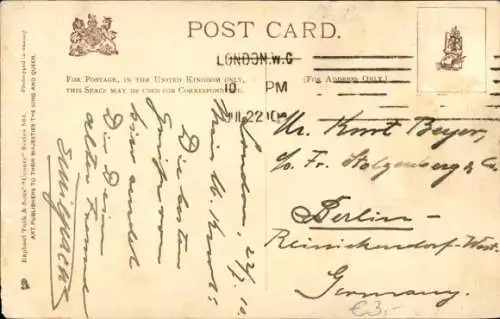 POST CARD.
LONDON.W.C
10 PM
JUL 22 10
FOR POSTAGE, IN THE UNITED KINGDOM ONLY,
THIS SPACE MAY BE USED FOR CORRESPONDENCE.
(FOR ADDRESS ONLY.)
Raphael Tuck & Sons' "County" Series
ART PUBLISHERS TO THEIR MAJESTIES THE KING AND QUEEN.
London, 22/7. 10.
Mein lb. Kurt!
Die besten
Grüsse von
hier sendet
Dir Dein
alter Freund
Mr. Kurt Beyer,
c/o Fr. Stolzenberg & Co.
Berlin-
Reinickendorf-West.
Germany.
€3,-